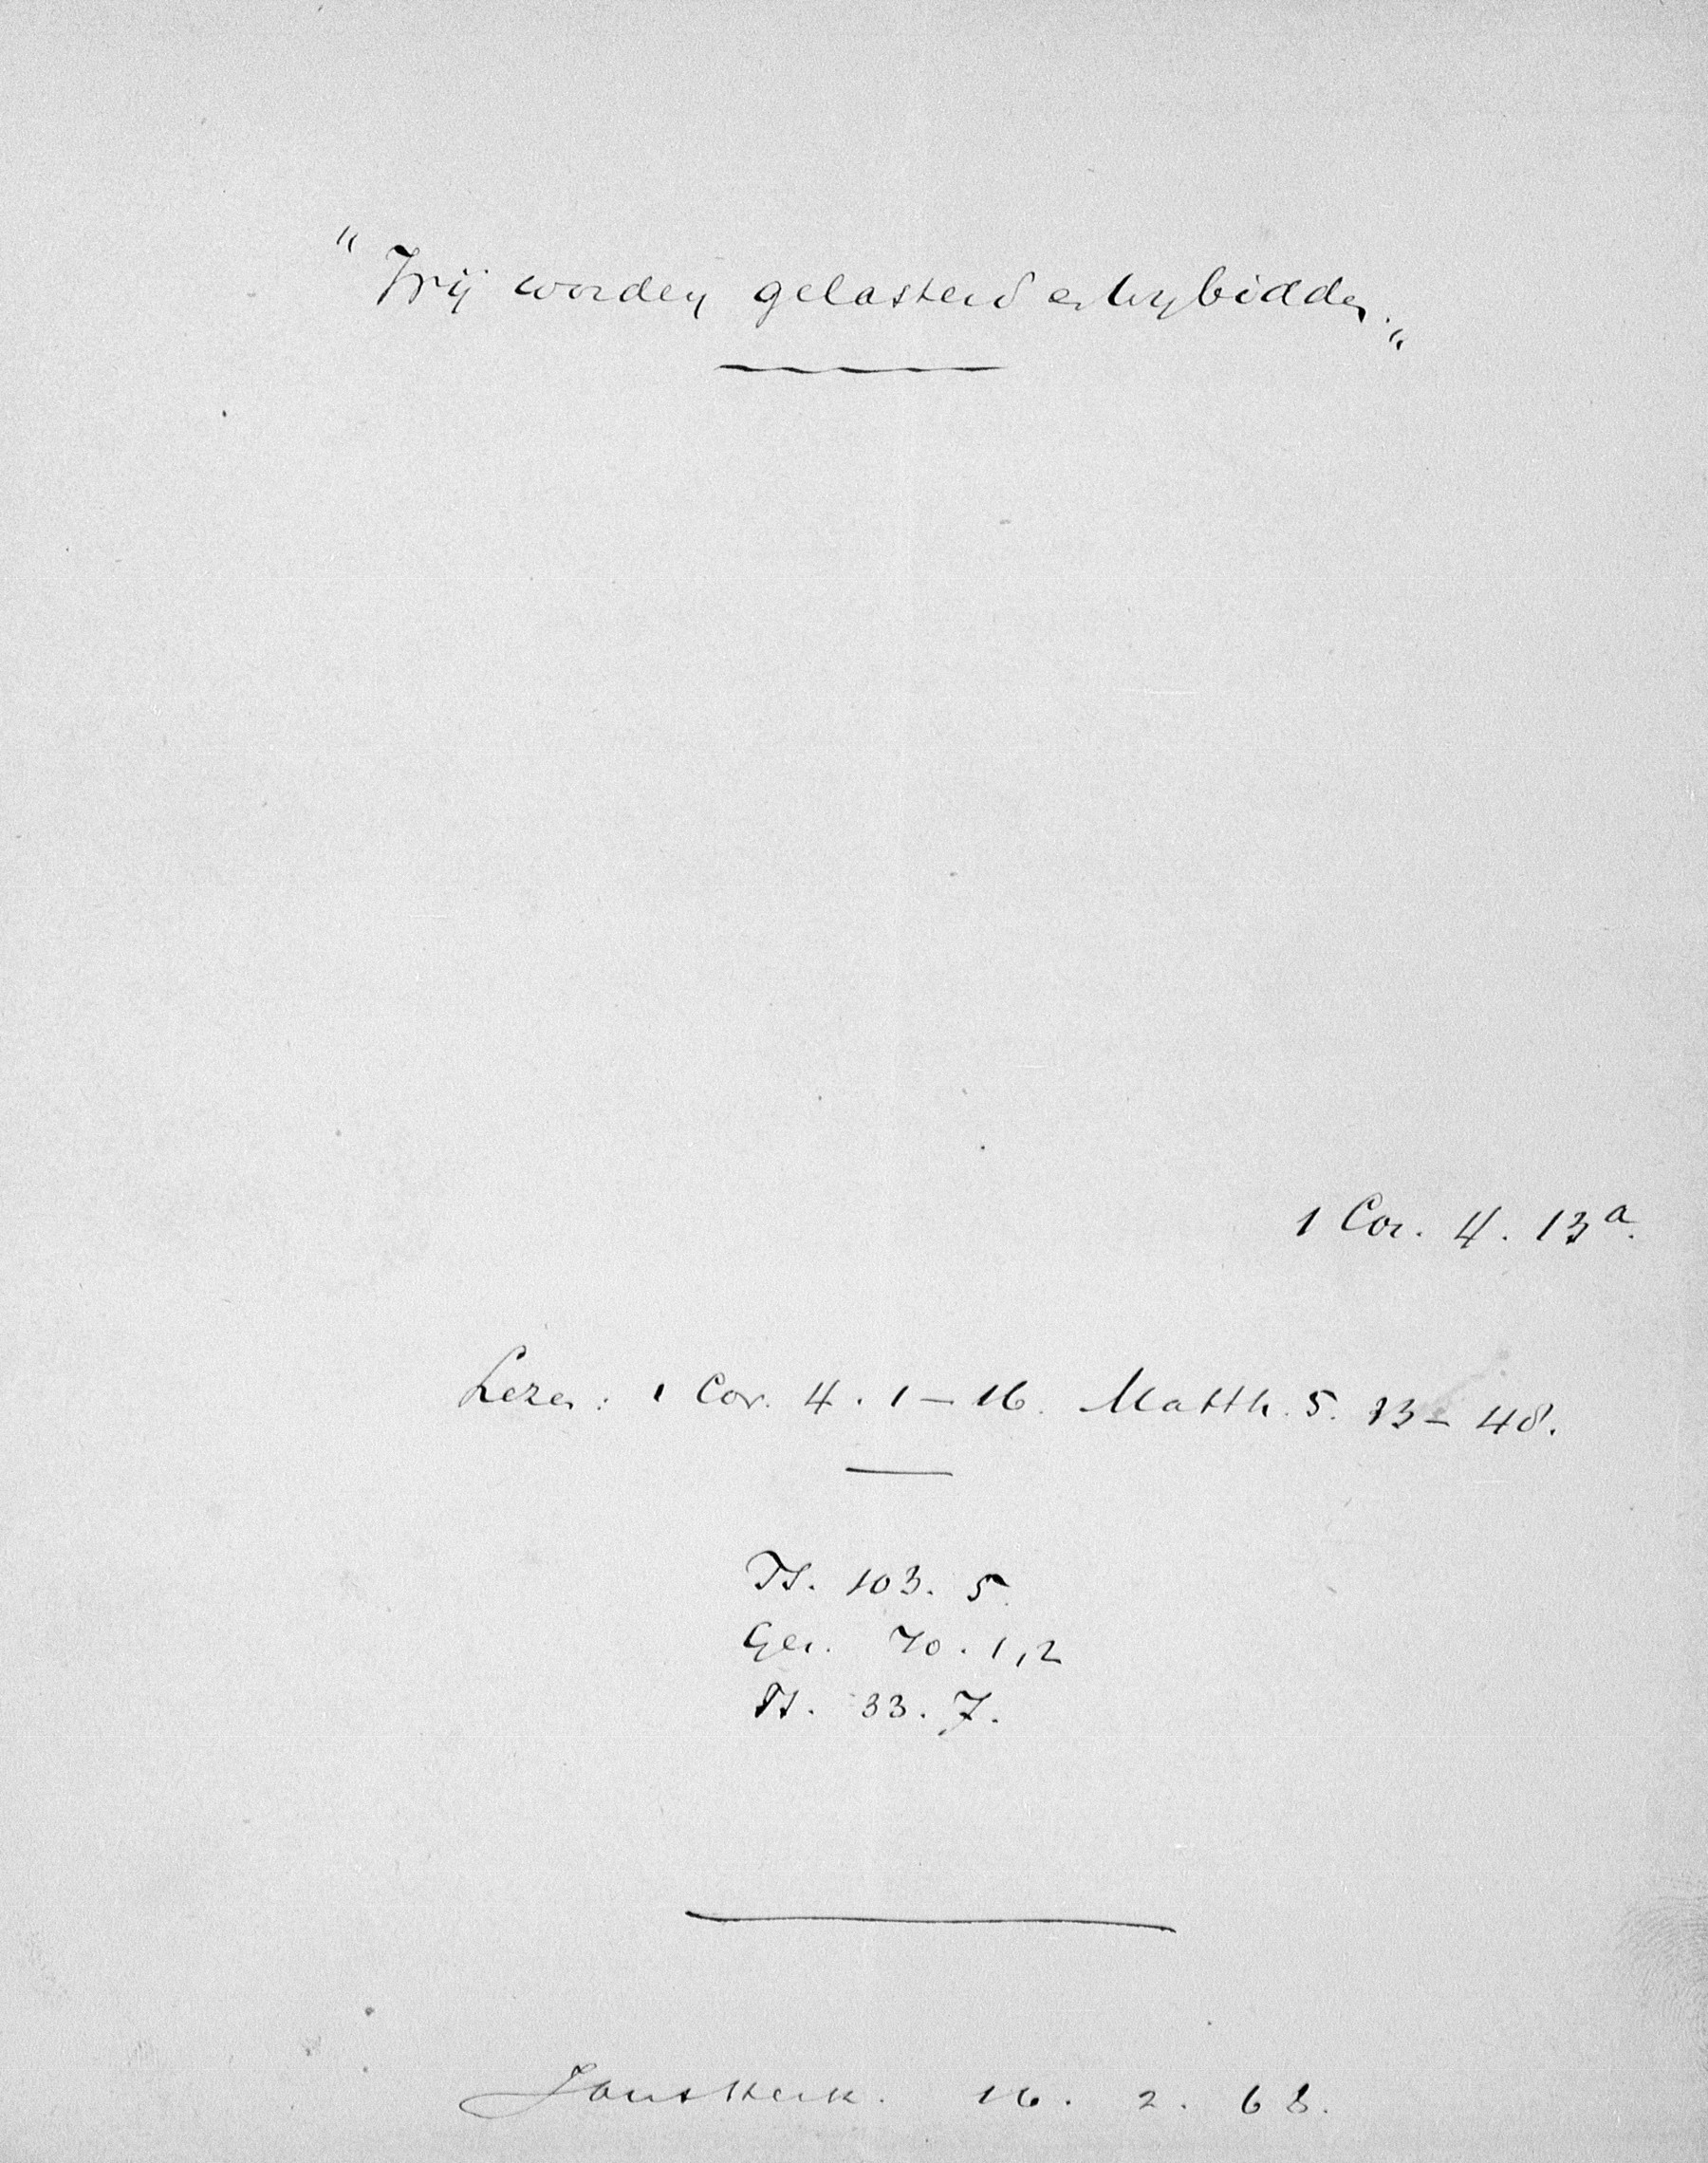 "Wij worden gelasterd en wy bidden."
1 Cor. 4. 13a.
Lezen: 1 Cor. 4. 1–16. Matth. 5. 33–48.
Ps. 103. 5.
Gez. 70. 1,2
Ps. 33. 7.
Janskerk. 16. 2. 68.